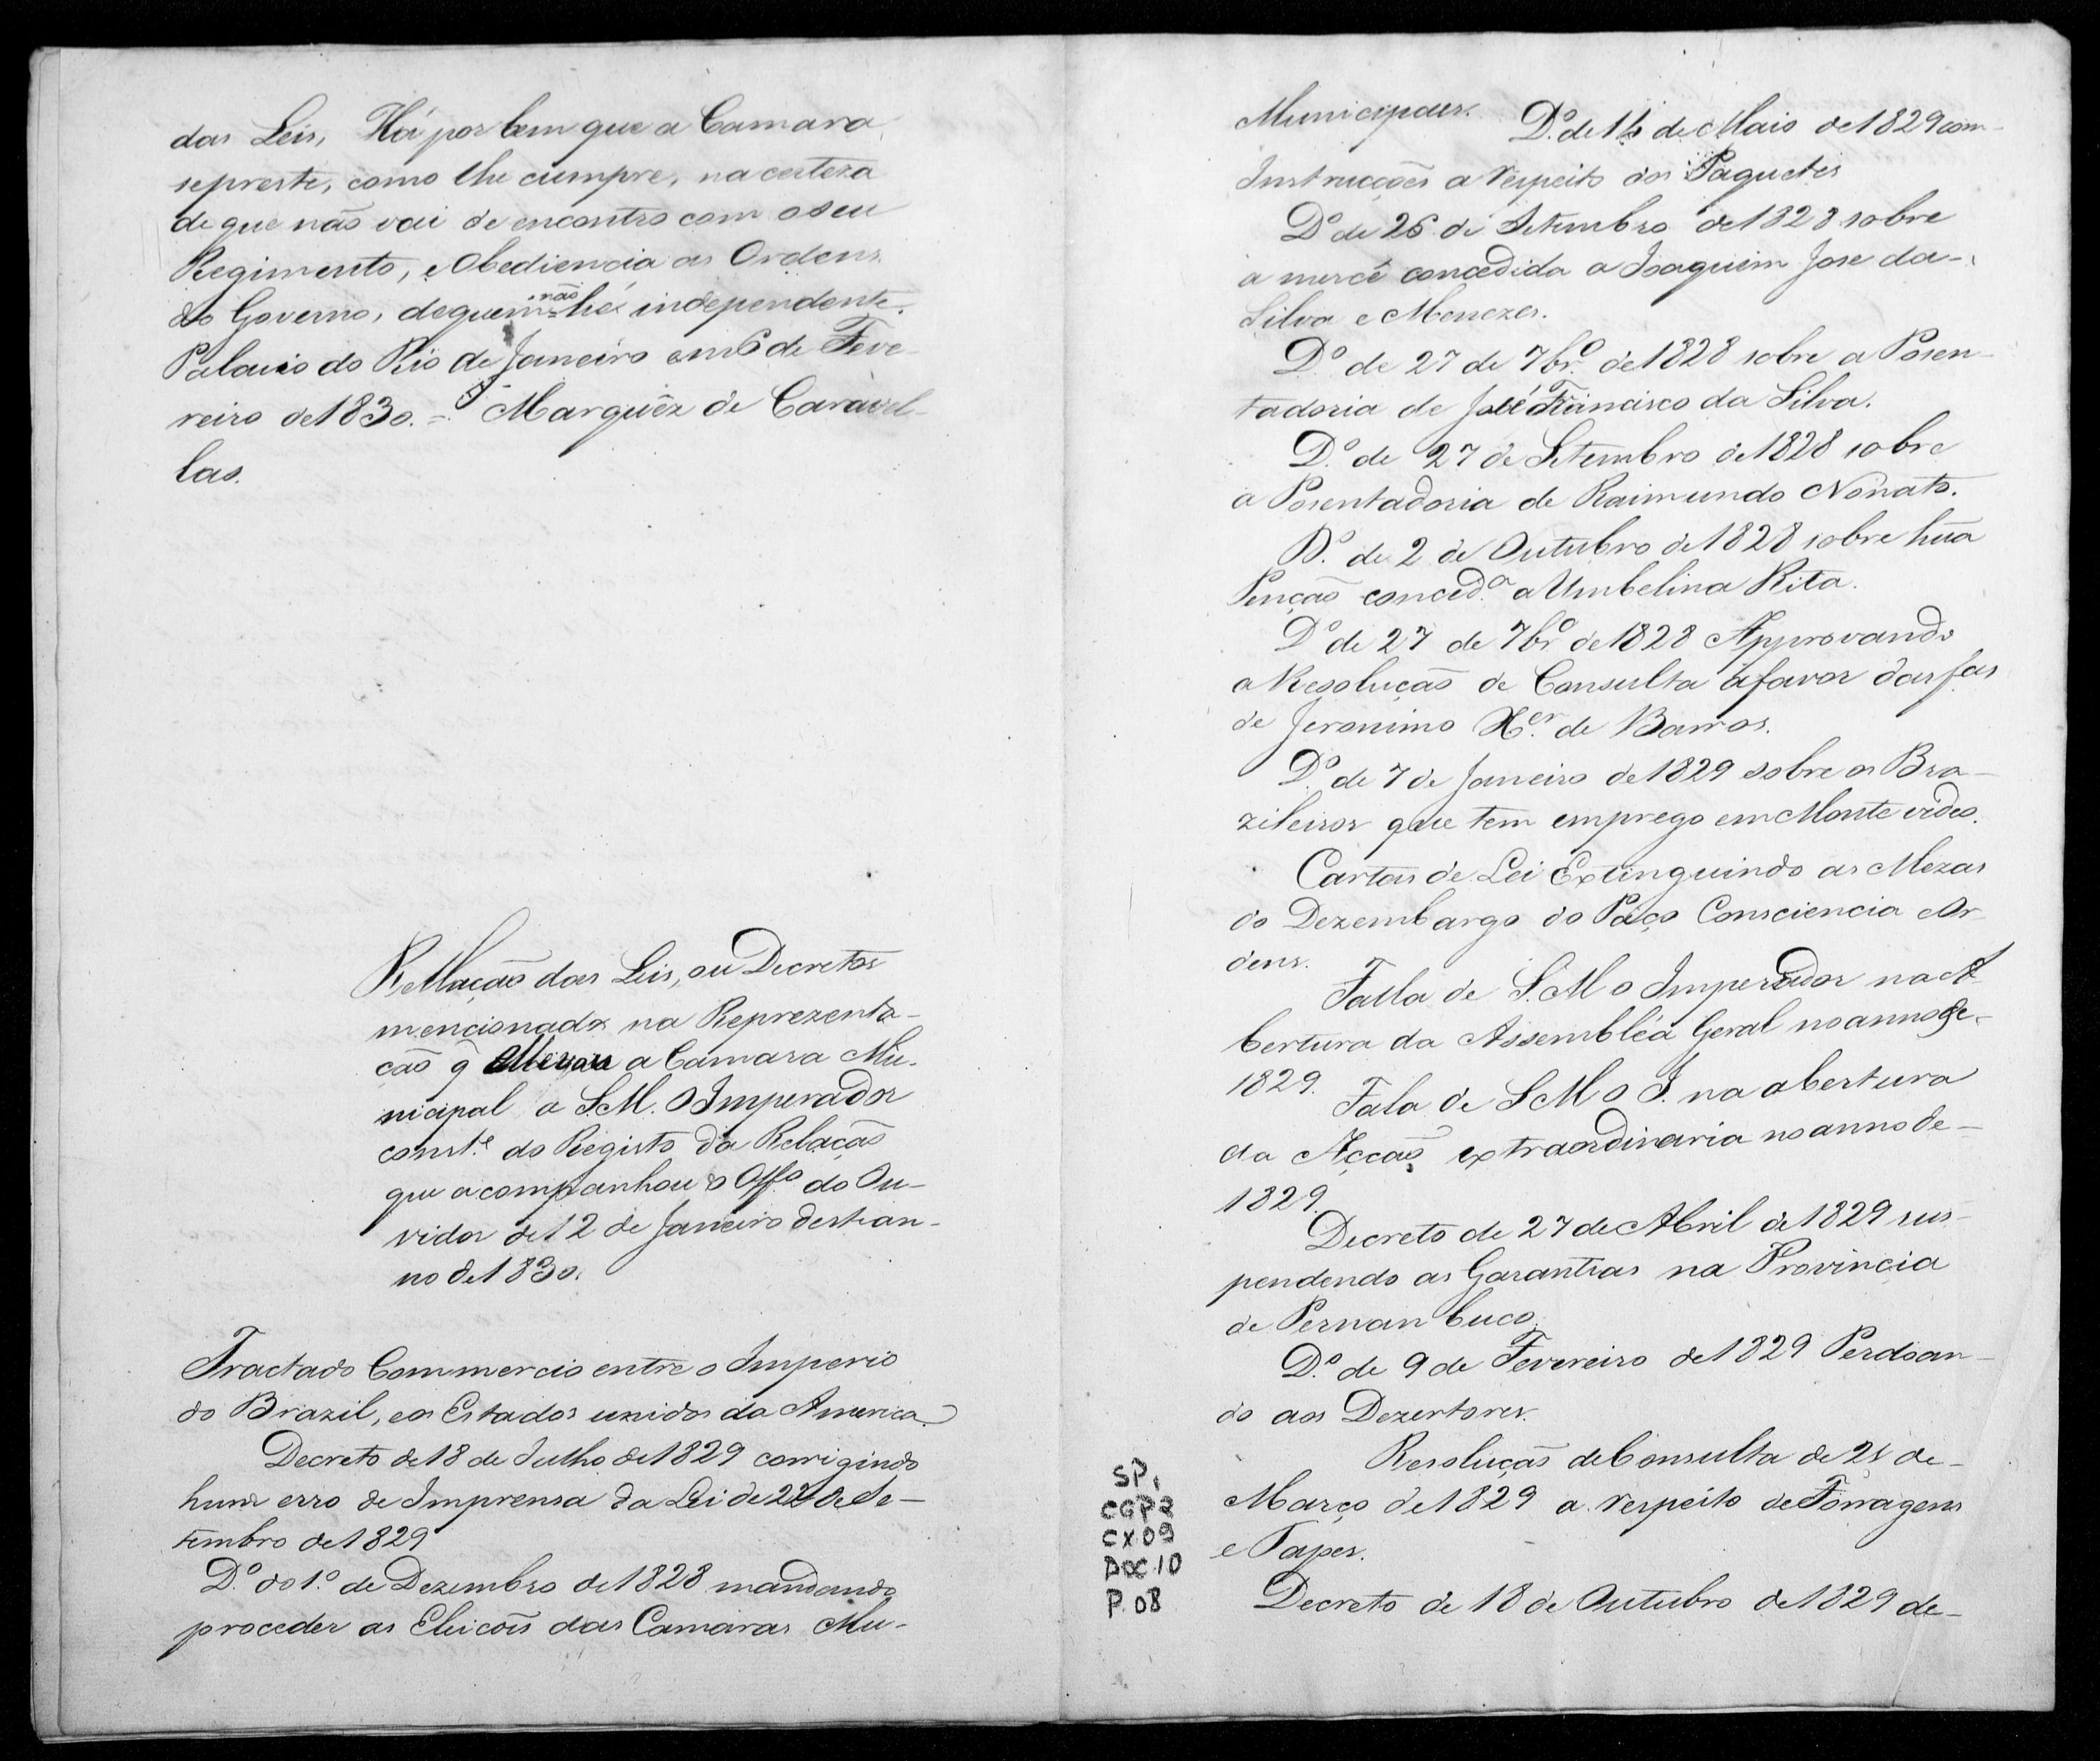 das Leis, Há por bem que a Camara
se preste, como lhe cumpre, na certeza
de que não vai de encontro com o seu
Regimento, e Obediencia as Ordens
do Governo, de quem não hé independente.
Palacio do Rio de Janeiro em 6 de Feve-
reiro de 1830. = Marquêz de Caravel-
las.
Rellação das Leis, ou Decretos
mencionados na Reprezenta-
ção q̃ a Camara Mu-
nicipal a S.M. O Imperador
const.e do Registo da Relação
que acompanhou o Off.o do Ou-
vidor de 12 de Janeiro deste an-
no de 1830.
Tractado Commercio entre o Imperio
do Brazil, e os Estados unidos da America
Decreto de 18 de Julho de 1829 corrigindo
hum erro de Imprensa da Lei de de Se-
tembro de 1829
D.o do 1.o de Dezembro de 1828 mandando
proceder as Eleicoēs das Camaras Mu-
Municipaes. D.o de 14 de Maio de 1829 com-
Instrucçoēs a respeito dos Paquetes
D.o de 26 de Setembro de 1828 sobre
a mercê concedida a Joaquim Jose da-
Silva e Menezes.
D.o de 27 de 7br.o de 1828 sobre a Posen-
tadoria de José Francisco da Silva.
D.o de 27 de Setembro de 1828 sobre
a Posentadoria de Raimundo Nonato.
D.o de 2 de Outubro de 1828 sobre hũa
Penção conced.a a Umbelina Rita.
D.o de 27 de 7br.o de 1828 Approvando
a Resolução de Consulta a favor das fas
de Jeronimo X.er de Barros.
D.o de 7 de Janeiro de 1829 sobre os Bra-
zileiros que tem emprego em Monte video.
Cartas de Lei Extinguindo as Mezas
do Dezembargo do Paço Consciencia e Or
dens.
Falla de S.M o Imperador na A-
bertura da Assembléa Geral no anno de-
1829.
Fala de S M o I. na abertura
da Acção extraordinaria no anno de-
1829.
Decreto de 27 de Abril de 1829 sus-
pendendo as Garantias na Provincia
de Pernambuco.
D.o de 9 de Fevereiro de 1829 Perdoan-
do aos Dezertores.
Resolução de Consulta de 21 de-
Março de 1829 a respeito de Forragens
e Tapes.
Decreto de 18 de Outubro de 1829 de-
SP,
CGP2
CX.09
DOC.10
P.08